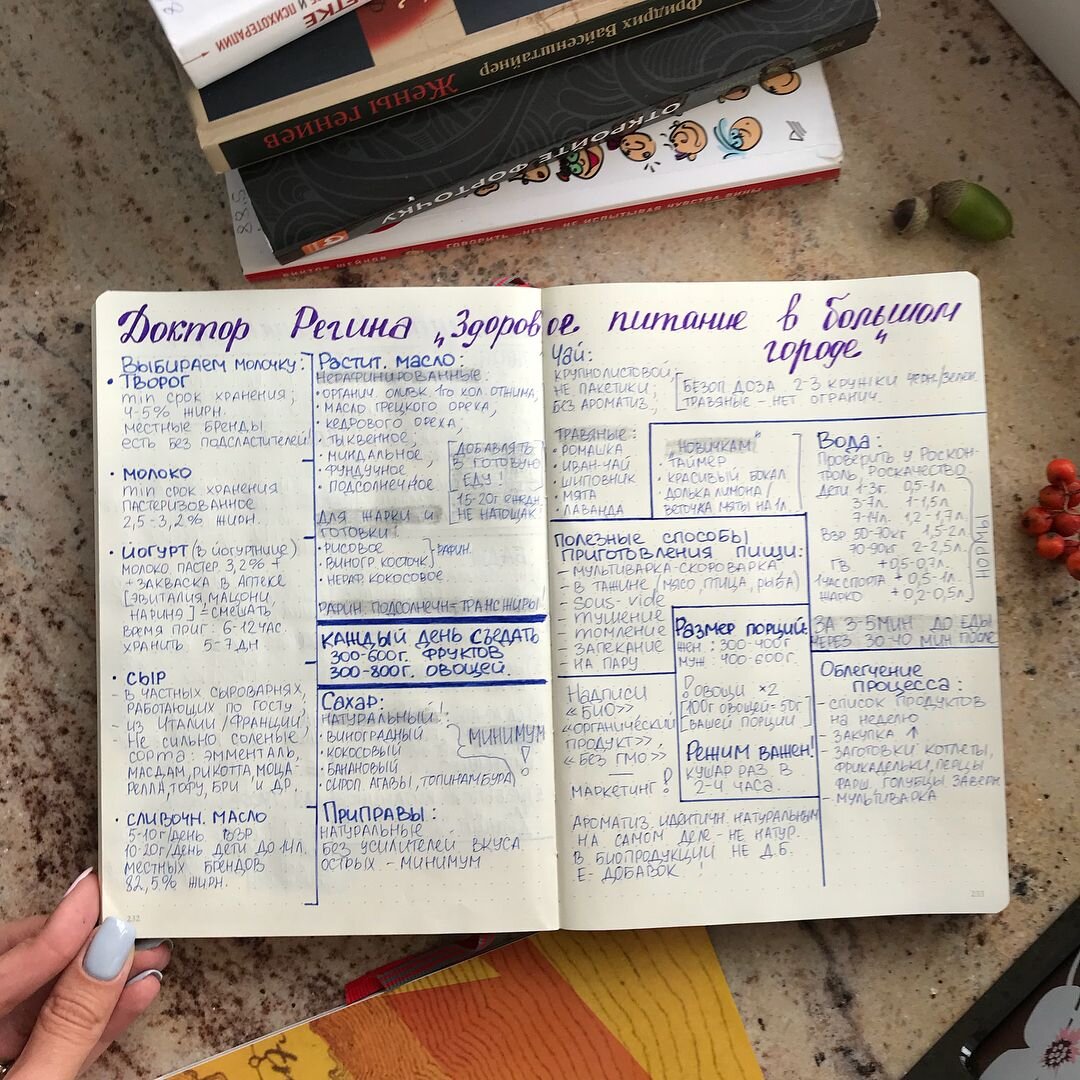 И ПСИХОТЕРАПИИ
Фридрих Вайсенштайнер
Жены гениев
ОТКРОЙТЕ ФОРТОЧКУ
ВИКТОР ШЕЙНОВ
ГОВОРИТЬ «НЕТ», НЕ ИСПЫТЫВАЯ ЧУВСТВА ВИНЫ
Доктор Регина „Здоровое питание в большом
городе"
Выбираем молочку:
• Творог
min срок хранения;
4-5% жирн.
местные бренды
есть без подсластителей!
• Молоко
min срок хранения
пастеризованное
2,5-3,2% жирн.
• Йогурт (в йогуртнице)
молоко пастер. 3,2% +
+ закваска в аптеке
[эвиталия, мацони,
наринэ] = смешать
время приг: 6-12 час.
хранить 5-7 дн
• Сыр
- в частных сыроварнях,
работающих по госту,
- из Италии/Франции,
- не сильно соленые,
сорта: эмменталь,
масдам, рикотта, моца-
релла, тофу, бри и др.
• Сливочн. масло
5-10г/день взр.
10-20г/день дети до 14л.
местных брендов
82,5% жирн.
232
Растит. масло:
нерафинированные:
• органич. оливк. 1го хол. отжима,
• масло грецкого ореха,
• кедрового ореха,
• тыквенное,
• миндальное,
• фундучное
• подсолнечное
добавлять
в готовую
еду!
15-20г ежедн.
не натощак!
для жарки и
готовки:
• рисовое
• виногр. косточк.
рафин.
• нераф. кокосовое
рафин. подсолнечн - трансжиры!
Каждый день съедать
300-600г. фруктов
300-800г. овощей.
Сахар:
натуральный!:
• виноградный
• кокосовый
• банановый
• сироп агавы, топинамбура
минимум!
Приправы:
натуральные
без усилителей вкуса
острых - минимум
Чай:
крупнолистовой,
не пакетики;
без ароматиз.;
безоп. доза 2-3 кружки черн./зелен.
травяные - нет огранич.
травяные:
• ромашка
• иван-чай
• шиповник
• мята
• лаванда
„новичкам"
• таймер
• красивый бокал
• долька лимона/
веточка мяты на 1л.
Вода:
Проверить у Роскон-
троль, Роскачество
дети 1-3г. 0,5-1л
3-7л. 1-1,5л.
7-14л. 1,2-1,7л.
взр. 50-70кг 1,5-2л.
70-90кг 2-2,5л.
ГВ +0,5-0,7л.
1час спорта +0,5-1л.
жарко +0,2-0,5л.
нормы
за 3-5мин до еды
через 30-40 мин после
Полезные способы
приготовления пищи:
- мультиварка-скороварка
- в тажине (мясо, птица, рыба)
- sous-vide
- тушение
- томление
- запекание
- на пару
Размер порций:
жен.: 300-400г
муж: 400-600г.
! овощи ×2
[100г овощей=50г
вашей порции]
Режим важен!
кушар раз в
2-4 часа.
Надписи
«Био»
«органический
продукт»,
«без ГМО»
—
маркетинг!
Ароматиз. идентичн. натуральным
на самом деле - не натур.
В биопродукции не д.б.
Е- добавок!
Облегчение
процесса:
- список продуктов
на неделю
- закупка ↑
- заготовки котлеты,
фрикадельки, перцы
фарш, голубцы заверн
- мультиварка
233